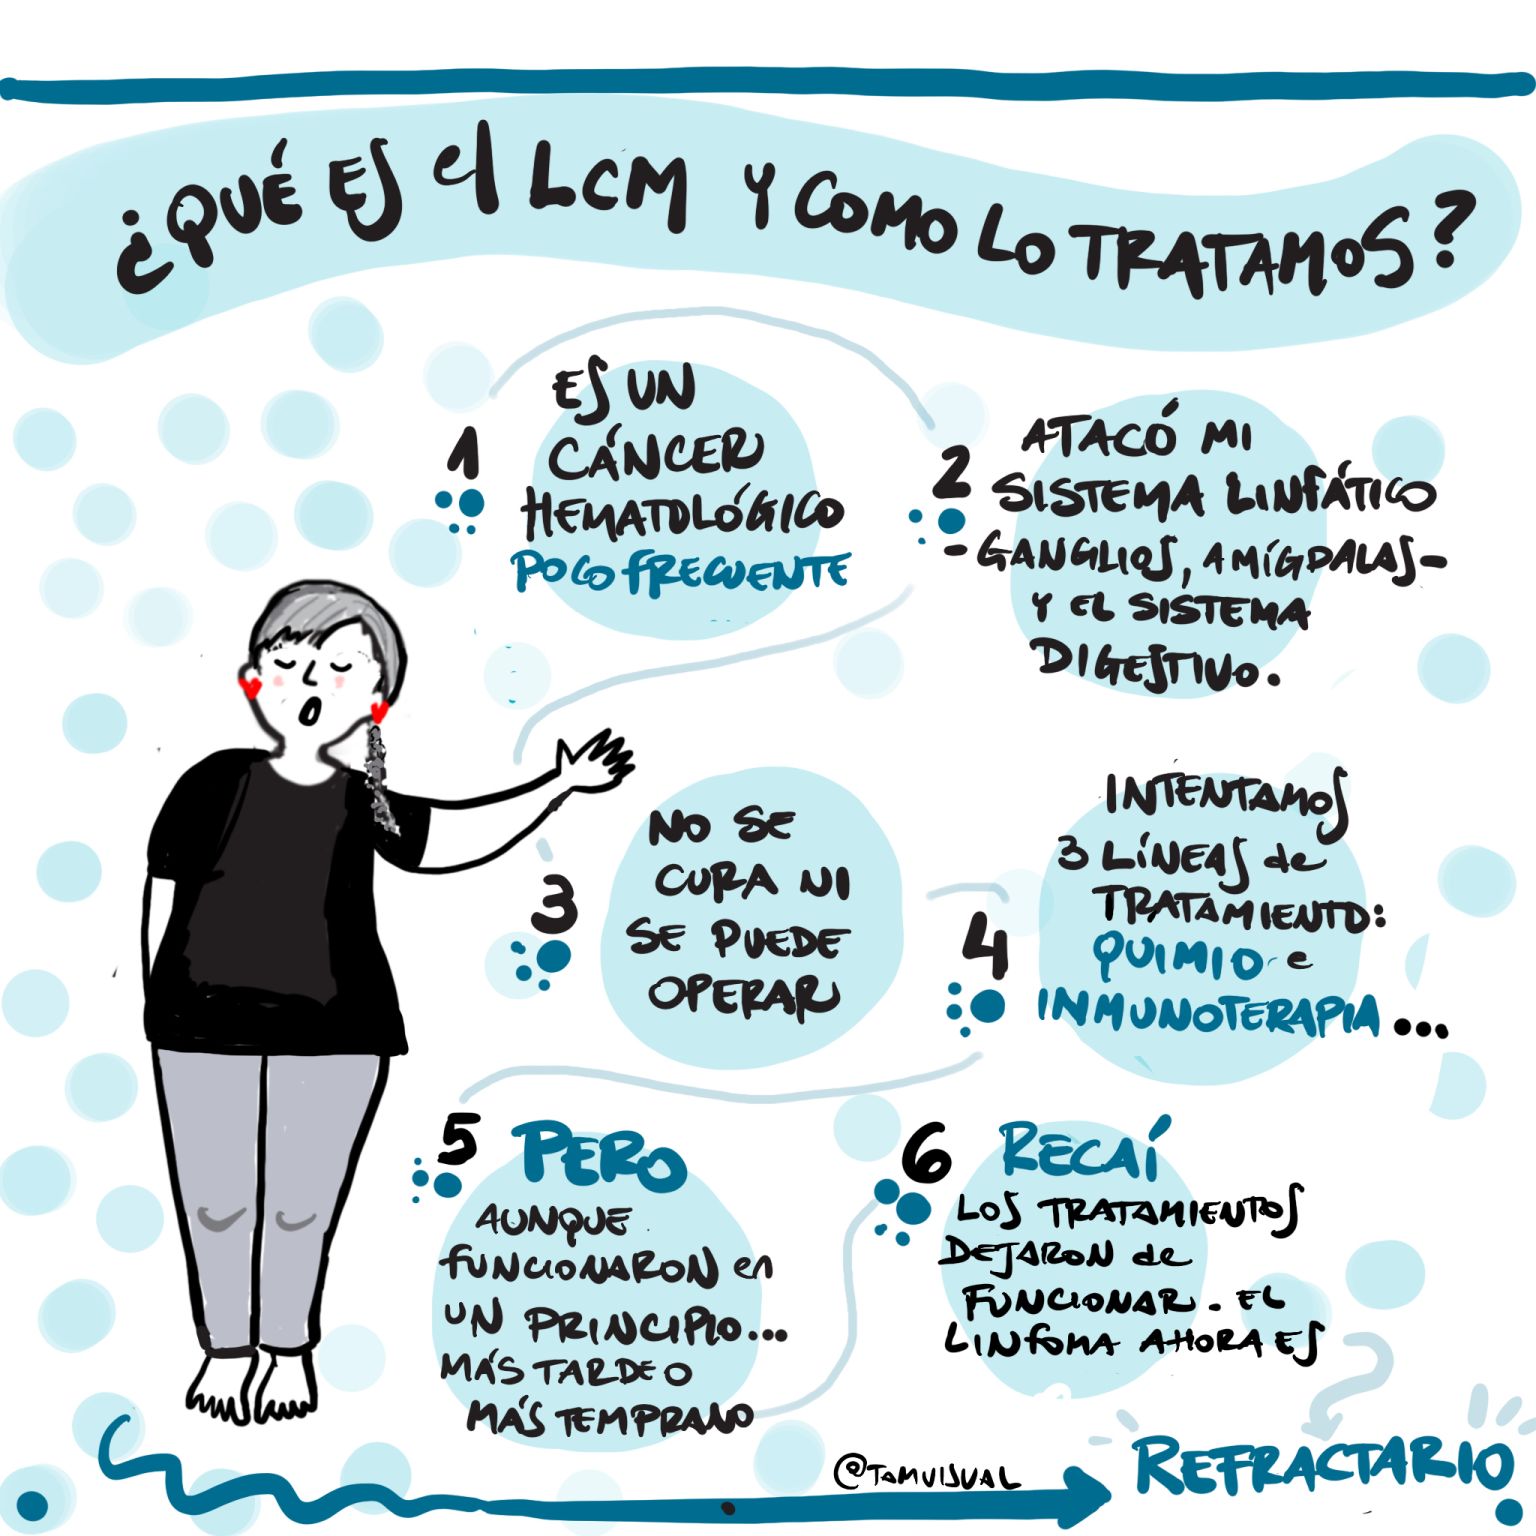 ¿QUÉ ES el LCM Y COMO LO TRATAMOS?
1
ES UN
CÁNCER
HEMATOLÓGICO
POCO FRECUENTE
2
ATACÓ MI
SISTEMA LINFÁTICO
-GANGLIOS, AMÍGDALAS-
Y EL SISTEMA
DIGESTIVO.
3
NO SE
CURA NI
SE PUEDE
OPERAR
4
INTENTAMOS
3 LÍNEAS de
TRATAMIENTO:
QUIMIO e
INMUNOTERAPIA...
5 PERO
AUNQUE
FUNCIONARON en
UN PRINCIPIO...
MÁS TARDE O
MÁS TEMPRANO
6 RECAÍ
LOS TRATAMIENTOS
DEJARON de
FUNCIONAR. EL
LINFOMA AHORA ES
REFRACTARIO
@TAMVISUAL